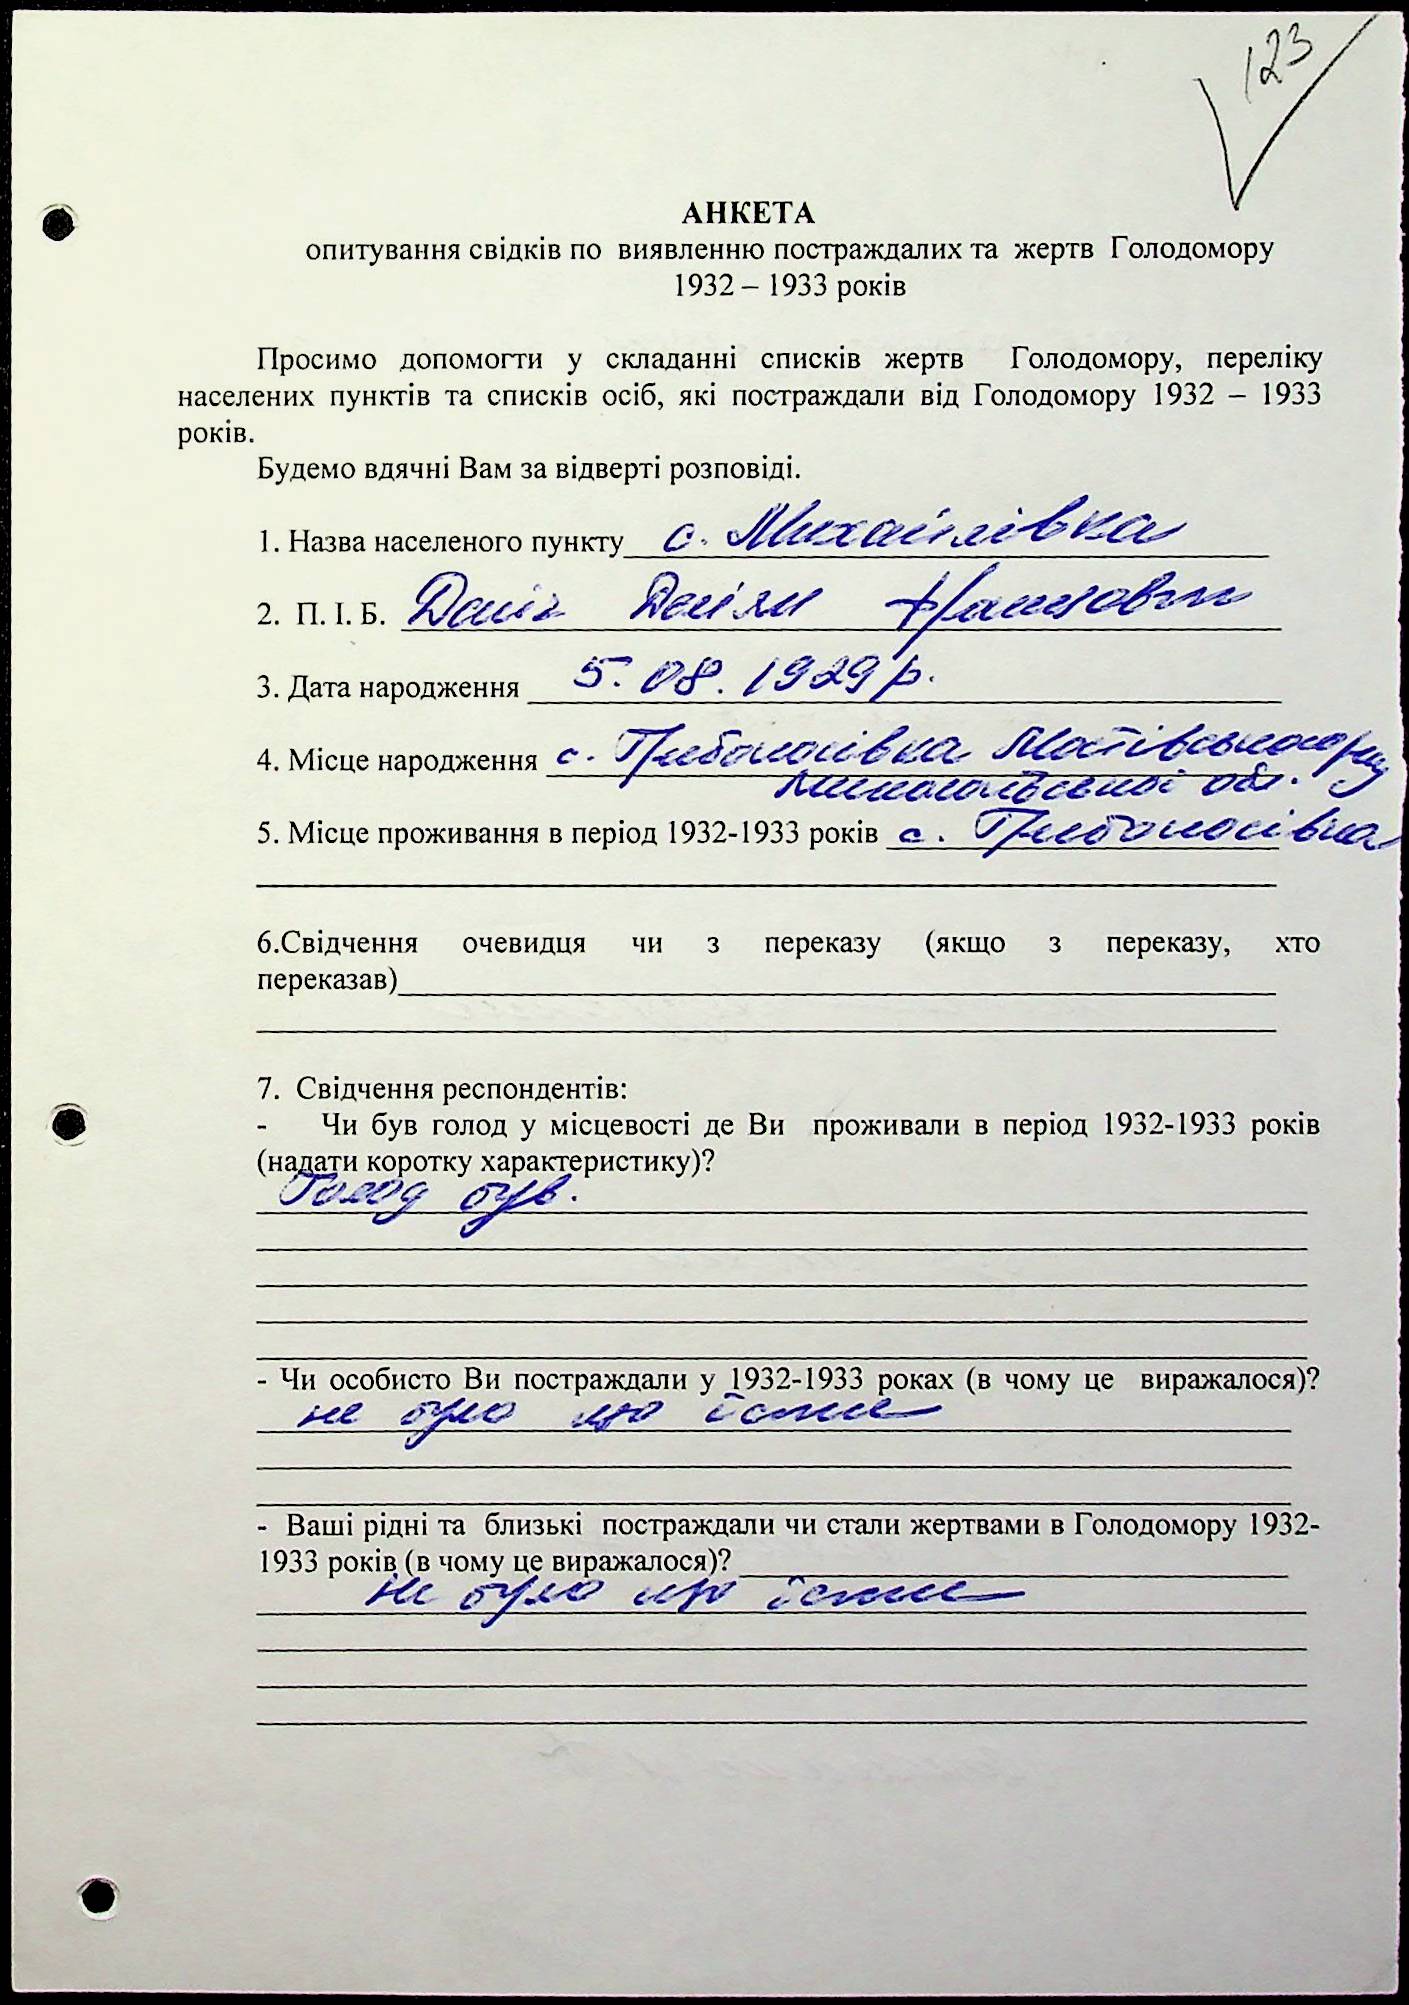 123
АНКЕТА
опитування свідків по виявленню постраждалих та жертв Голодомору
1932 – 1933 років
Просимо допомогти у складанні списків жертв Голодомору, переліку
населених пунктів та списків осіб, які постраждали від Голодомору 1932 – 1933
років.
Будемо вдячні Вам за відверті розповіді.
1. Назва населеного пункту с. Михайлівка
2. П. І. Б.
3. Дата народження 5.08.1929 р.
4. Місце народження с.
Миколаївської обл.
5. Місце проживання в період 1932-1933 років с.
6.Свідчення очевидця чи з переказу (якщо з переказу, хто
переказав)
7. Свідчення респондентів:
- Чи був голод у місцевості де Ви проживали в період 1932-1933 років
(надати коротку характеристику)?
Голод був.
- Чи особисто Ви постраждали у 1932-1933 роках (в чому це виражалося)?
не було що їсти
- Ваші рідні та близькі постраждали чи стали жертвами в Голодомору 1932-
1933 років (в чому це виражалося)?
не було що їсти